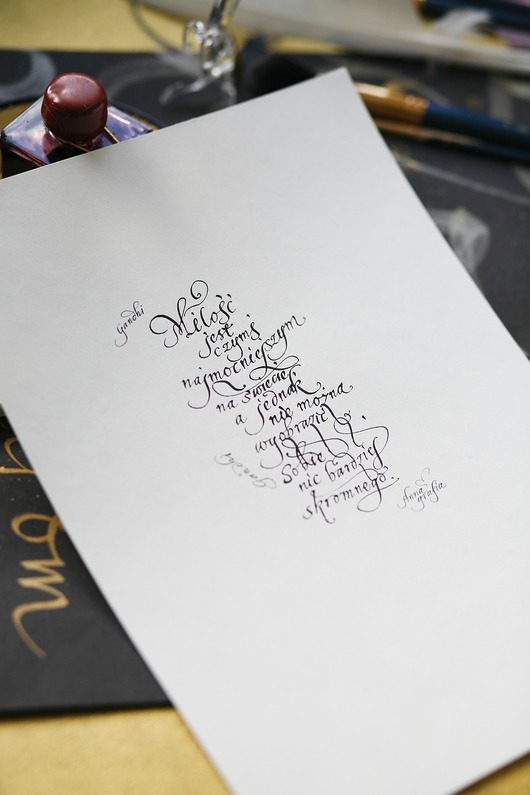 Gandhi
Miłość
jest
czymś
najmocniejszym
na świecie
a jednak
nie można
wyobrazić
sobie
nic bardziej
skromnego.
Gandhi
Anna
grafia
om